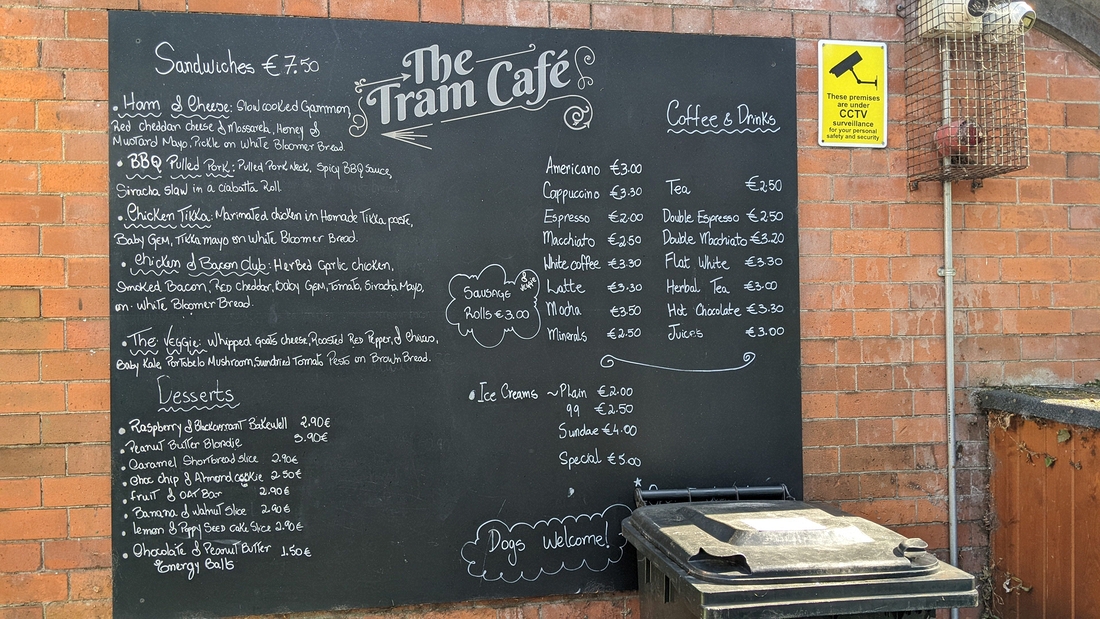 The
Tram Café
Sandwiches €7.50
• Ham & Cheese: Slow cooked Gammon,
Red Cheddar cheese & Mossarela, Honey &
Mustard Mayo, Pickle on White Bloomer Bread.
• BBQ Pulled Pork: Pulled Pork Neck, Spicy BBQ Sauce,
Siracha slaw in a ciabatta Roll
• Chicken Tikka: Marinated chicken in Homade Tikka paste,
Baby Gem, Tikka mayo on White Bloomer Bread.
• Chicken & Bacon Club: Herbed Garlic chicken,
Smoked Bacon, Red Cheddar, Baby Gem, Tomato, Siracha Mayo,
on White Bloomer Bread.
• The Veggie: Whipped goats cheese, Roosted Red Pepper, & Chives,
Baby Kale, Portabelo Mushroom, Sundried Tomato Pesto on Brown Bread.
Desserts
• Raspberry & Blackcurrant Bakewell 2.90€
• Peanut Butter Blondie 3.90€
• Caramel Shortbread slice 2.90€
• Choc chip & Almond cookie 2.50€
• Fruit & Oat Bar 2.90€
• Banana & Walnut Slice 2.90€
• Lemon & Poppy Seed cake Slice 2.90€
• Chocolate & Peanut Butter 1.50€
Energy Balls
Sausage
Rolls €3.00
Coffee & Drinks
Americano €3.00
Cappuccino €3.30
Espresso €2.00
Macchiato €2.50
White coffee €3.30
Latte €3.30
Mocha €3.50
Minerals €2.50
Tea €2.50
Double Espresso €2.50
Double Macchiato €3.20
Flat White €3.30
Herbal Tea €3.00
Hot Chocolate €3.30
Juices €3.00
• Ice Creams ~ Plain €2.00
99 €2.50
Sundae €4.00
Special €5.00
Dogs Welcome!
These premises
are under
CCTV
surveillance
for your personal
safety and security